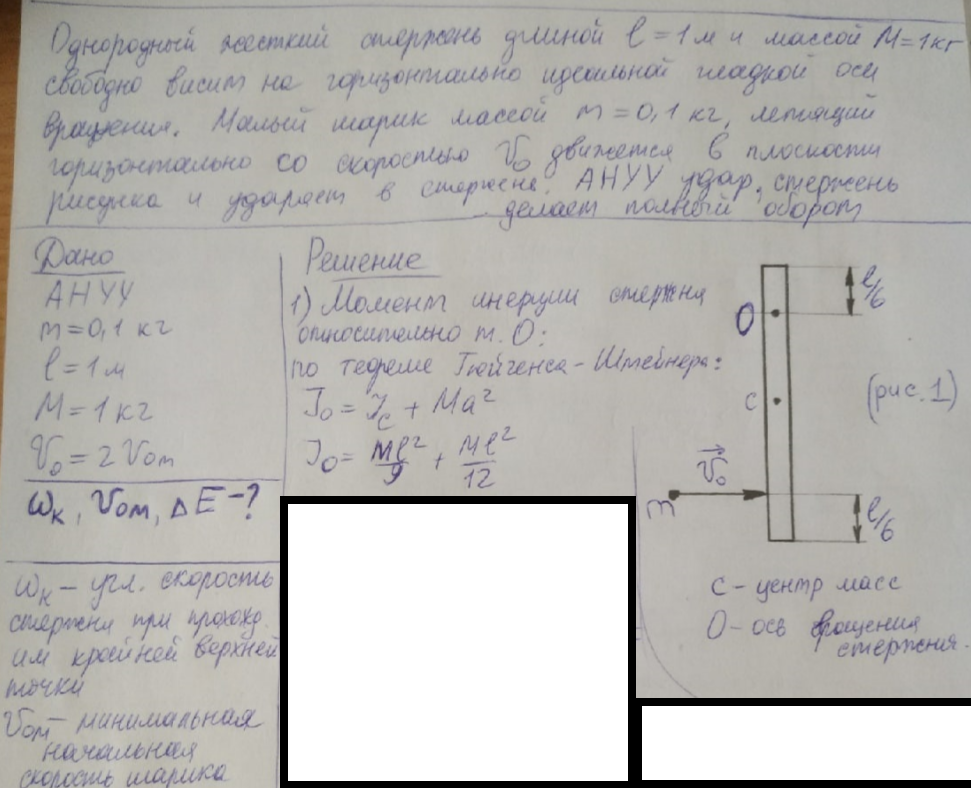 Однородный жесткий стержень длиной l = 1 м и массой M = 1 кг
свободно висит на горизонтально идеальной гладкой оси
вращения. Малый шарик массой m = 0,1 кг, летящий
горизонтально со скоростью V₀ движется в плоскости
рисунка и ударяет в стержень. АНУУ удар, стержень
делает полный оборот
Дано
АНУУ
m = 0,1 кг
l = 1 м
M = 1 кг
V₀ = 2 Vom
ωк, Vom, ΔE - ?
ωк – угл. скорость
стержня при проход.
им крайней верхней
точки
Vom – минимальная
начальная
скорость шарика
Решение
1) Момент инерции стержня
относительно т. O:
по теореме Гюйгенса-Штейнера:
J₀ = J_c + Ma²
J₀ = Ml²/9 + Ml²/12
l/6
O
C
(рис. 1)
V₀
m
l/6
C – центр масс
O – ось вращения
стержня.